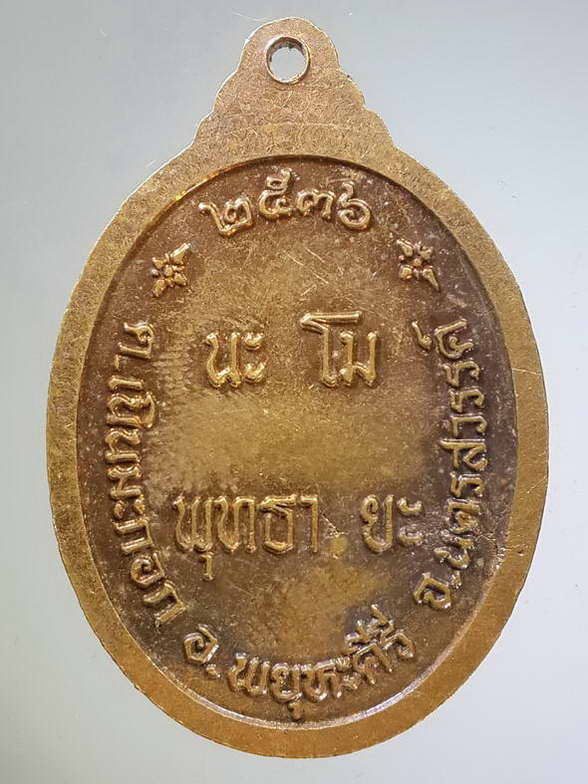 ๒๕๓๖
นะ โม
พุทธา ยะ
ต.เนินมะกอก อ.พยุหะคีรี จ.นครสวรรค์